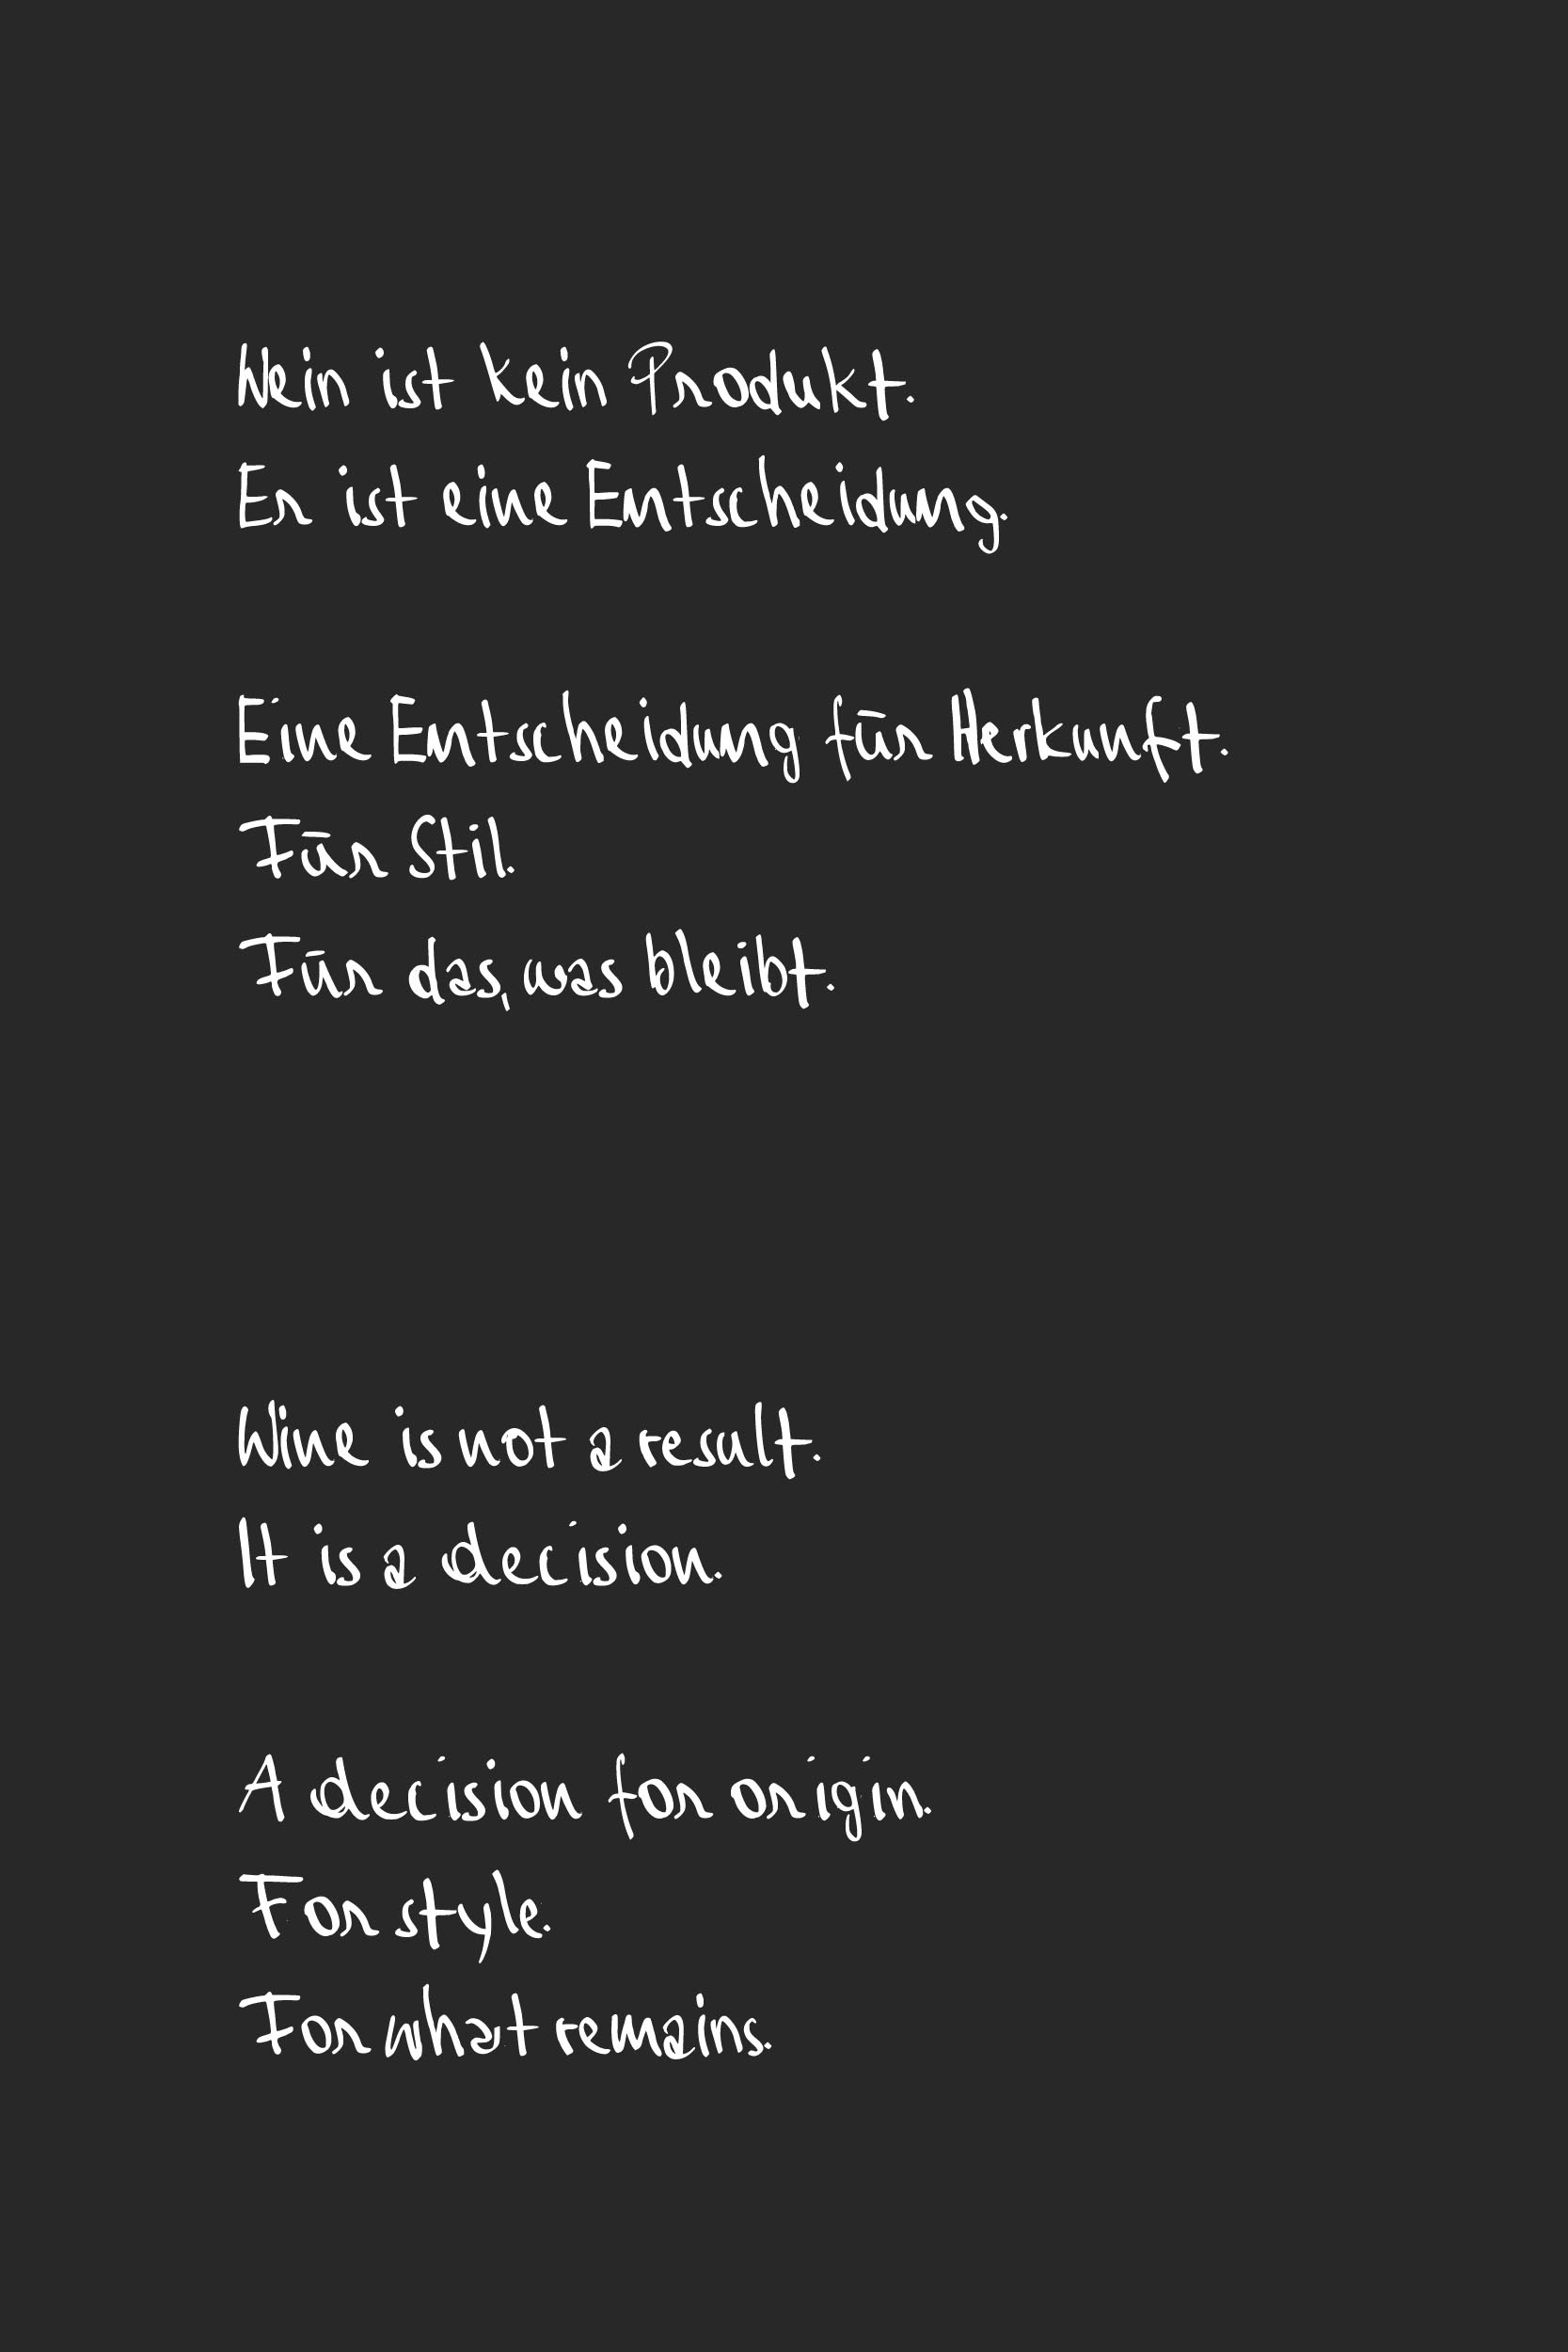 Wein ist kein Produkt.
Er ist eine Entscheidung.
Eine Entscheidung für Herkunft.
Für Stil.
Für das, was bleibt.
Wine is not a result.
It is a decision.
A decision for origin.
For style.
For what remains.